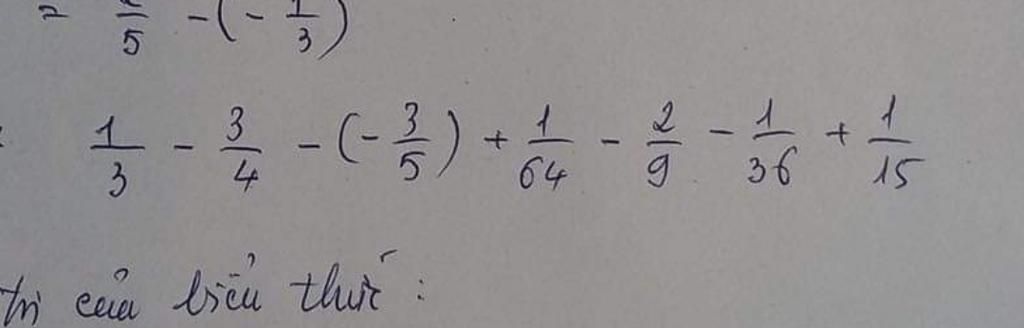 = 2/5 - (- 1/3)
1/3 - 3/4 - (- 3/5) + 1/64 - 2/9 - 1/36 + 1/15
trị của biểu thức :